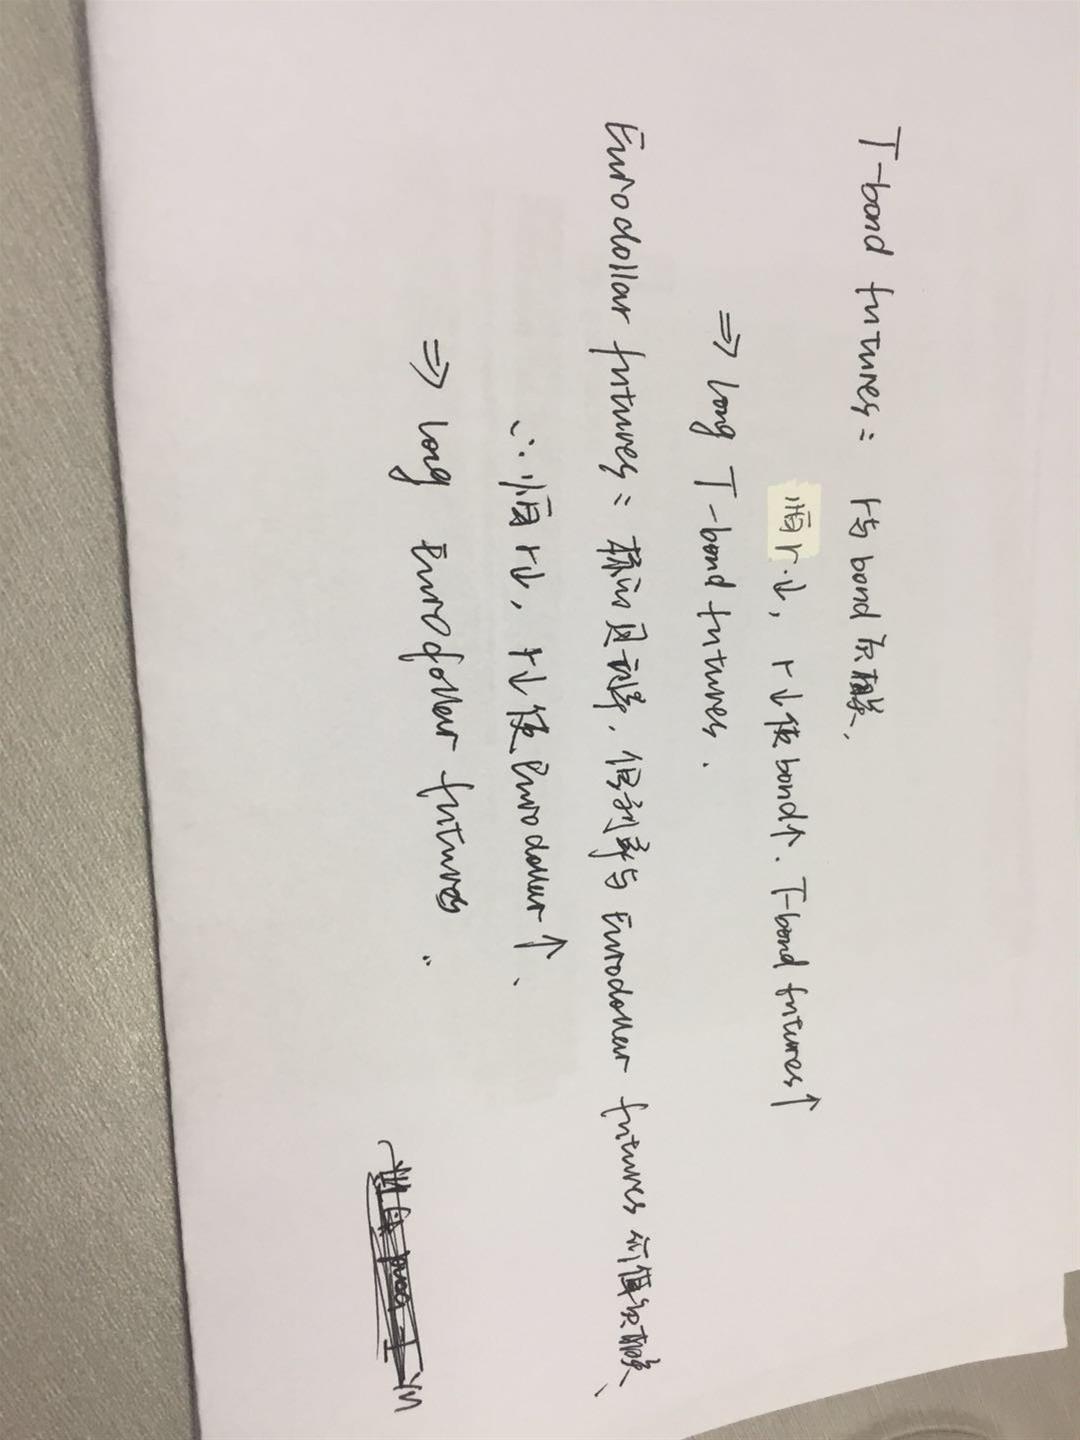 T-bond futures: r与bond负相关.
怕r↓, r↓使bond↑. T-bond futures↑
⇒ long T-bond futures.
Eurodollar futures: 标的是利率, 但利率与Eurodollar futures价值负相关.
∴怕r↓, r↓使Eurodollar↑.
⇒ long Eurodollar futures.